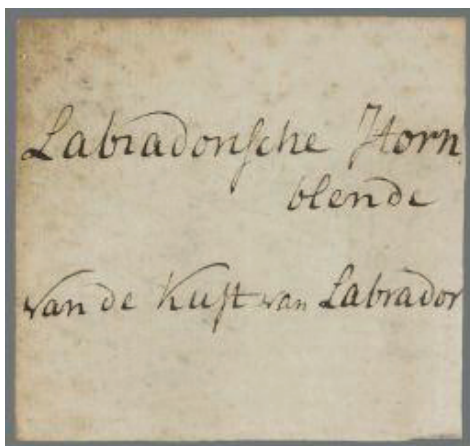 Labradorische Horn
blende
van de Kust van Labrador